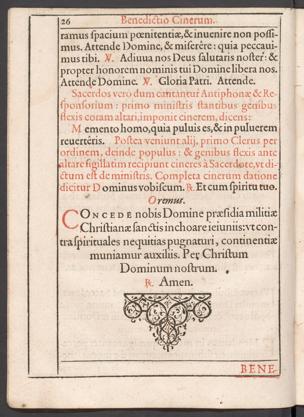 26 Benedictio Cinerum.
ramus spacium pœnitentiæ, & inuenire non possi-
mus. Attende Domine, & miserêre: quia peccaui-
mus tibi. ℣. Adiuua nos Deus salutaris noster: &
propter honorem nominis tui Domine libera nos.
Attende Domine. ℣. Gloria Patri. Attende.
Sacerdos verò dum cantantur Antiphonæ & Re-
sponsorium: primò ministris stantibus genibus
flexis coram altari, imponit cinerem, dicens:
Memento homo, quia puluis es, & in puluerem
reuertêris. Postea veniunt alij, primo Clerus per
ordinem, deinde populus: & genibus flexis ante
altare sigillatim recipiunt cineres à Sacerdote, vt di-
ctum est de ministris. Completa cinerum datione
dicitur Dominus vobiscum. ℟. Et cum spiritu tuo.
Oremus.
CONCEDE nobis Domine præsidia militiæ
Christianæ sanctis inchoare ieiuniis: vt con-
tra spirituales nequitias pugnaturi, continentiæ
muniamur auxiliis. Per Christum
Dominum nostrum.
℟. Amen.
BENE-